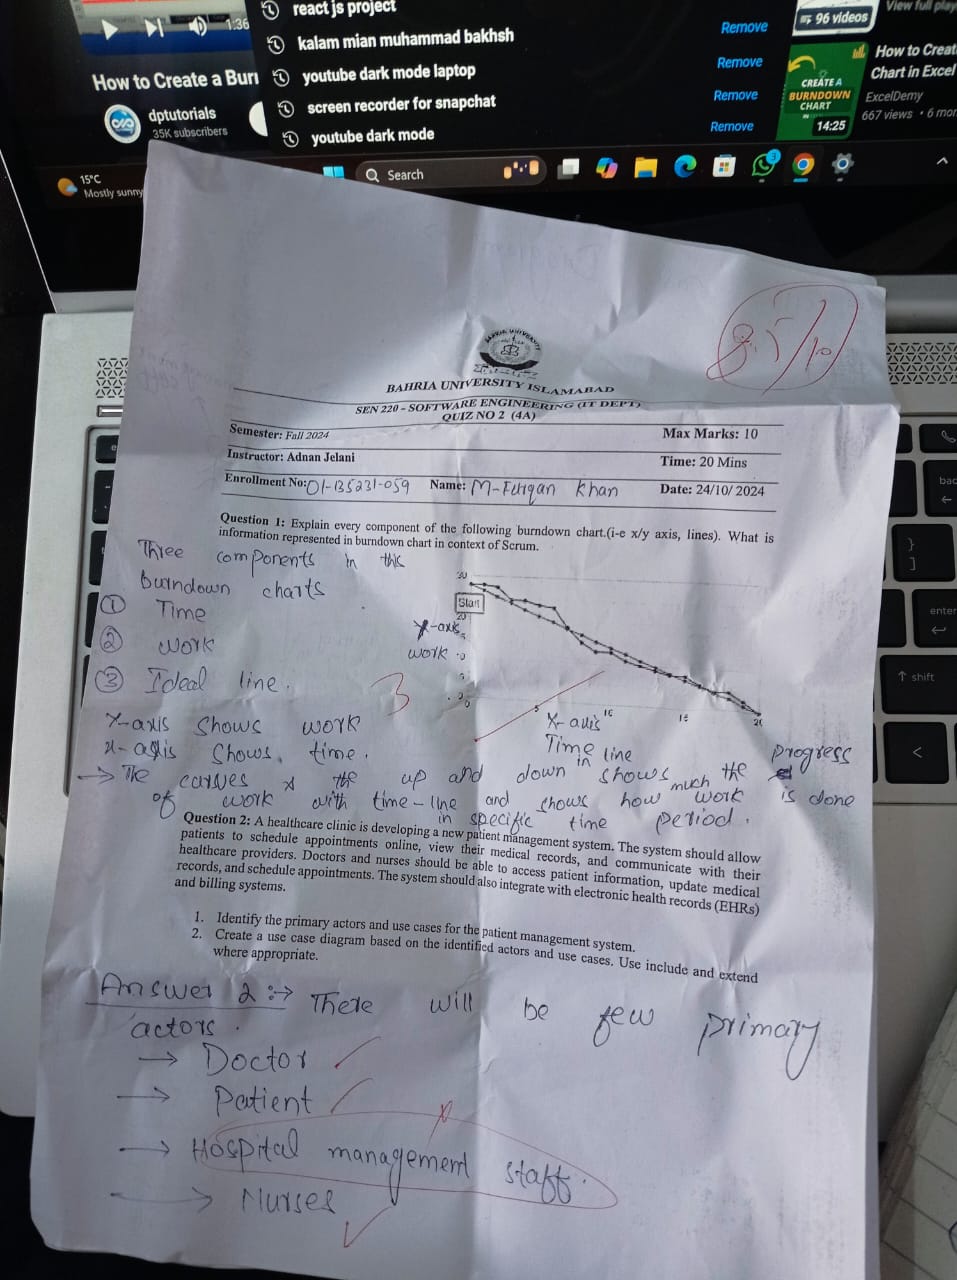 react js project
Remove
kalam mian muhammad bakhsh
Remove
youtube dark mode laptop
Remove
screen recorder for snapchat
Remove
youtube dark mode
1:36
How to Create a Burn
dptutorials
35K subscribers
96 videos
View full play
CREATE A
BURNDOWN
CHART
14:25
How to Creat
Chart in Excel
ExcelDemy
667 views • 6 mon
15°C
Mostly sunny
Search
3
8.5/10
BAHRIA UNIVERSITY
BAHRIA UNIVERSITY ISLAMABAD
SEN 220 – SOFTWARE ENGINEERING (IT DEPT)
QUIZ NO 2 (4A)
Semester: Fall 2024
Max Marks: 10
Instructor: Adnan Jelani
Time: 20 Mins
Enrollment No: 01-135231-059 Name: M-Furqan Khan
Date: 24/10/ 2024
Question 1: Explain every component of the following burndown chart.(i-e x/y axis, lines). What is
information represented in burndown chart in context of Scrum.
Three components in this
burndown charts
① Time
② work
③ Ideal line.
30
Start
20
-axis
work
5
15
X-axis
Time line
3
Y-axis shows work
x-axis shows time.
→ The curves & the up and down in shows the progress
of work with time-line and shows how much work is done
in specific time period.
Question 2: A healthcare clinic is developing a new patient management system. The system should allow
patients to schedule appointments online, view their medical records, and communicate with their
healthcare providers. Doctors and nurses should be able to access patient information, update medical
records, and schedule appointments. The system should also integrate with electronic health records (EHRs)
and billing systems.
1. Identify the primary actors and use cases for the patient management system.
2. Create a use case diagram based on the identified actors and use cases. Use include and extend
where appropriate.
Answer 2 :→ There will be few primary
actors.
→ Doctor
→ Patient
→ Hospital management staff.
→ Nurses
enter
shift